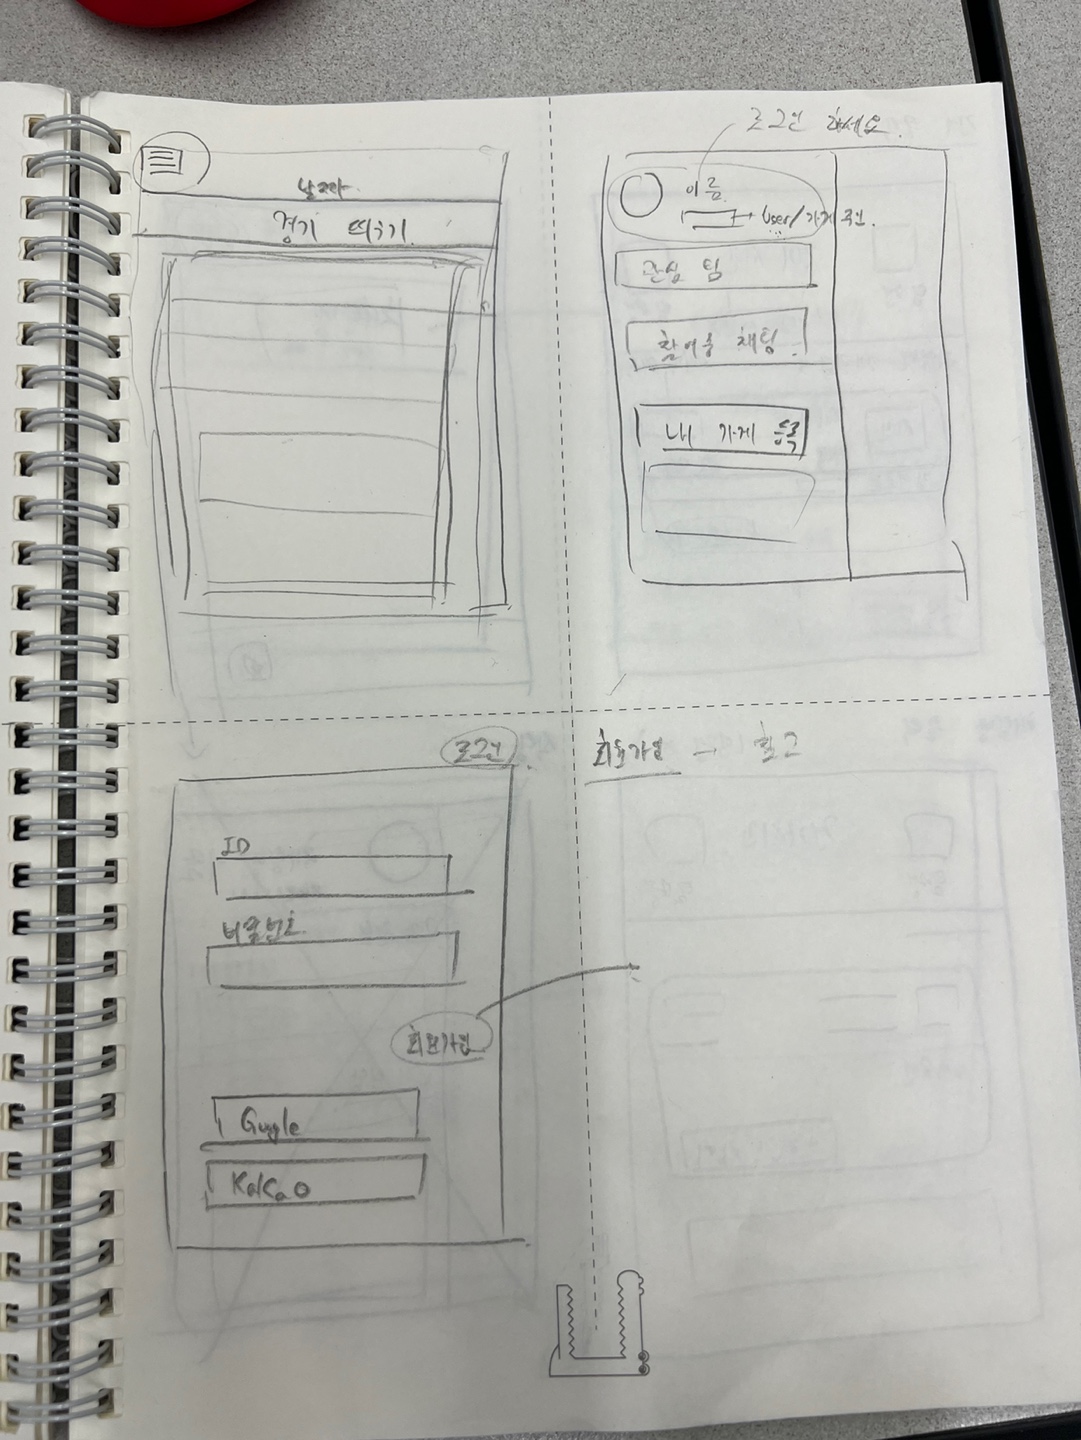 날짜
경기 띄우기
로그인 하세요.
이름
User/가게 주인.
관심 팀
참여중 채팅
내 가게 등록
로그인
ID
비밀번호
회원가입
Google
KaKao
회원가입 →